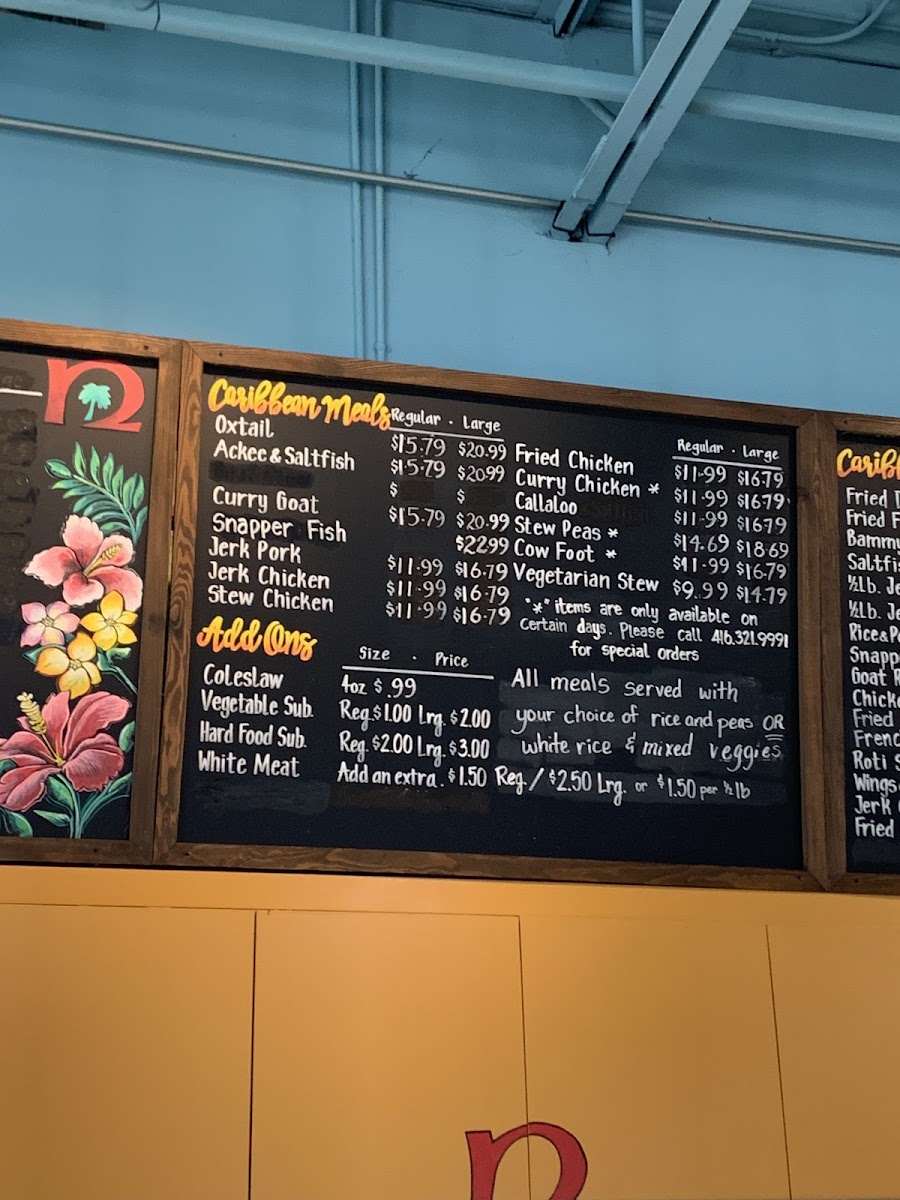 n
Caribbean Meals Regular · Large
Oxtail $15.79 $20.99
Ackee & Saltfish $15.79 $20.99
$ $
Curry Goat $15.79 $20.99
Snapper Fish $22.99
Jerk Pork $11.99 $16.79
Jerk Chicken $11.99 $16.79
Stew Chicken $11.99 $16.79
Regular · Large
Fried Chicken $11.99 $16.79
Curry Chicken * $11.99 $16.79
Callaloo $11.99 $16.79
Stew Peas * $14.69 $18.69
Cow Foot * $11.99 $16.79
Vegetarian Stew $9.99 $14.79
"*" items are only available on
certain days. Please call 416.321.9991
for special orders
Add Ons
Size · Price
Coleslaw 4oz $.99
Vegetable Sub. Reg. $1.00 Lrg. $2.00
Hard Food Sub. Reg. $2.00 Lrg. $3.00
White Meat Add an extra . $1.50 Reg. / $2.50 Lrg. or $1.50 per ½ lb
All meals served with
your choice of rice and peas OR
white rice & mixed veggies
Carib
Fried
Fried F
Bammy
Saltfis
½Lb. Je
½Lb. Je
Rice & Pe
Snapp
Goat R
Chicke
Fried
Frenc
Roti S
Wings
Jerk
Fried
n